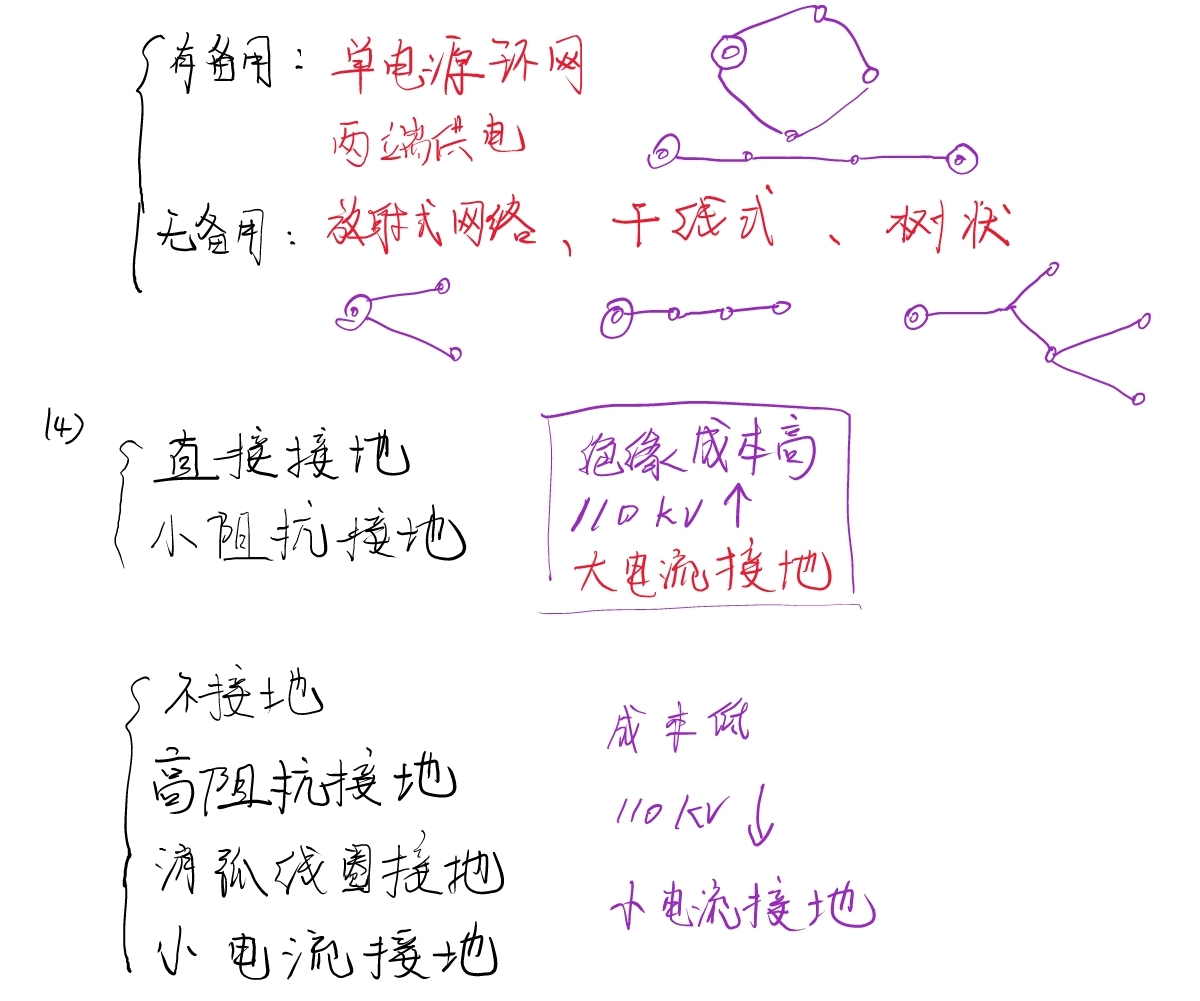 有备用：单电源环网
两端供电
无备用：放射式网络、干线式、树状
(4)
直接接地
小阻抗接地
绝缘成本高
110kV↑
大电流接地
不接地
高阻抗接地
消弧线圈接地
小电流接地
成本低
110kV↓
小电流接地